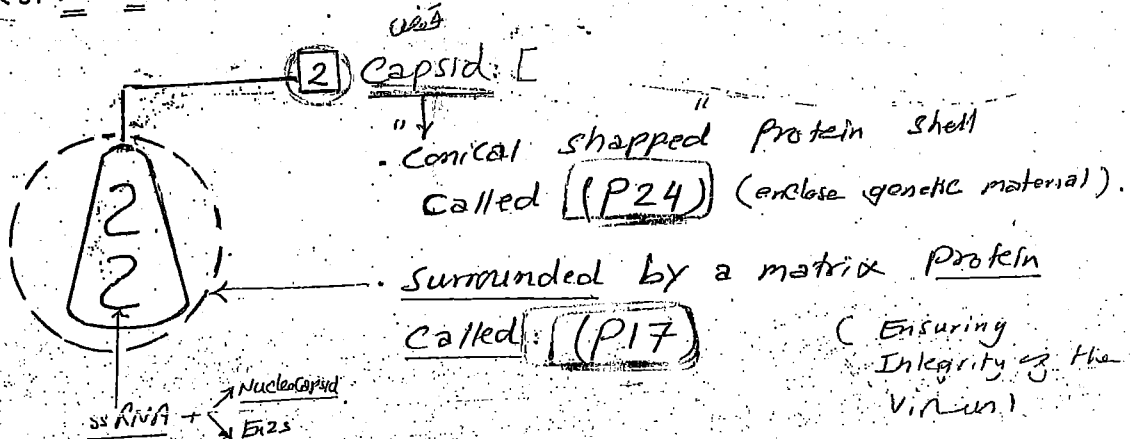 2 Capsid: [
" "
. Conical shapped Protein Shell
Called [(P24)] (enclose genetic material).
2
2
. Surrounded by a matrix Protein
Called: [(P17)
( Ensuring
Integrity of the
Virion)
Nucleocapsid
ssRNA +
Enzs